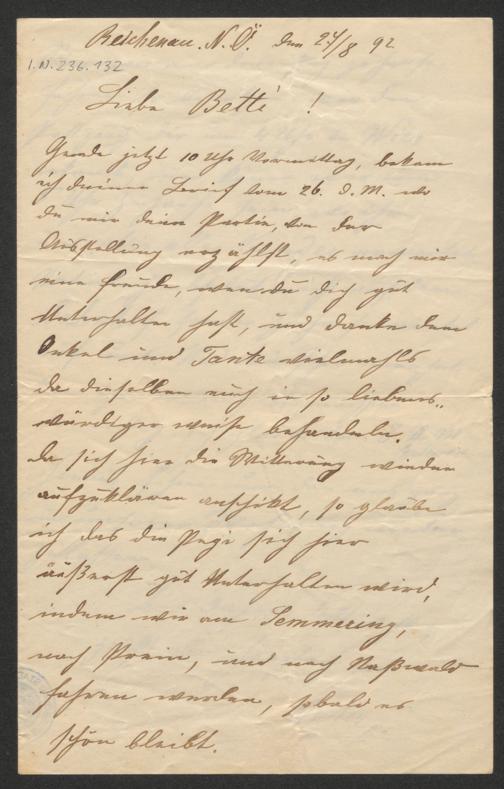 Reichenau. N.Ö. den 27/8 92
I.N. 236.132
Liebe Betti !
Gerade jetzt 10 Uhr Vormittag, bekam
ich deinen Brief vom 26. d. M. wo
du mir deine Partie, von der
Ausstellung erzählst, es mach mir
eine freude, wen du dich gut
Unterhalten hast, und danke dem
Onkel und Tante vielmahls
da dieselben euch in so liebens„
würdiger weise behandeln.
da sich hier die Witterung wieder
aufzuklären anschikt, so glaube
ich das die Pepi sich hier
äußerst gut Unterhalten wird,
indem wir am Semmering,
nach Prein, und nach Naßwald
fahren werden, sobald es
schön bleibt.